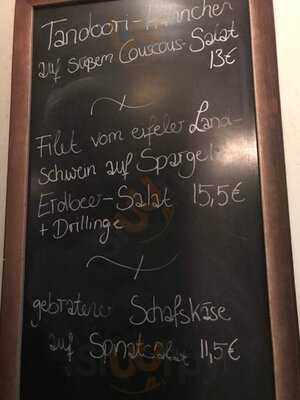 Tandoori-Hähnchen
auf süßem Couscous-Salat
13€
Filet vom eifeler Land-
schwein auf Spargel
Erdbeer-Salat 15,5€
+ Drillinge
gebratener Schafskäse
auf Spinatsalat 11,5€